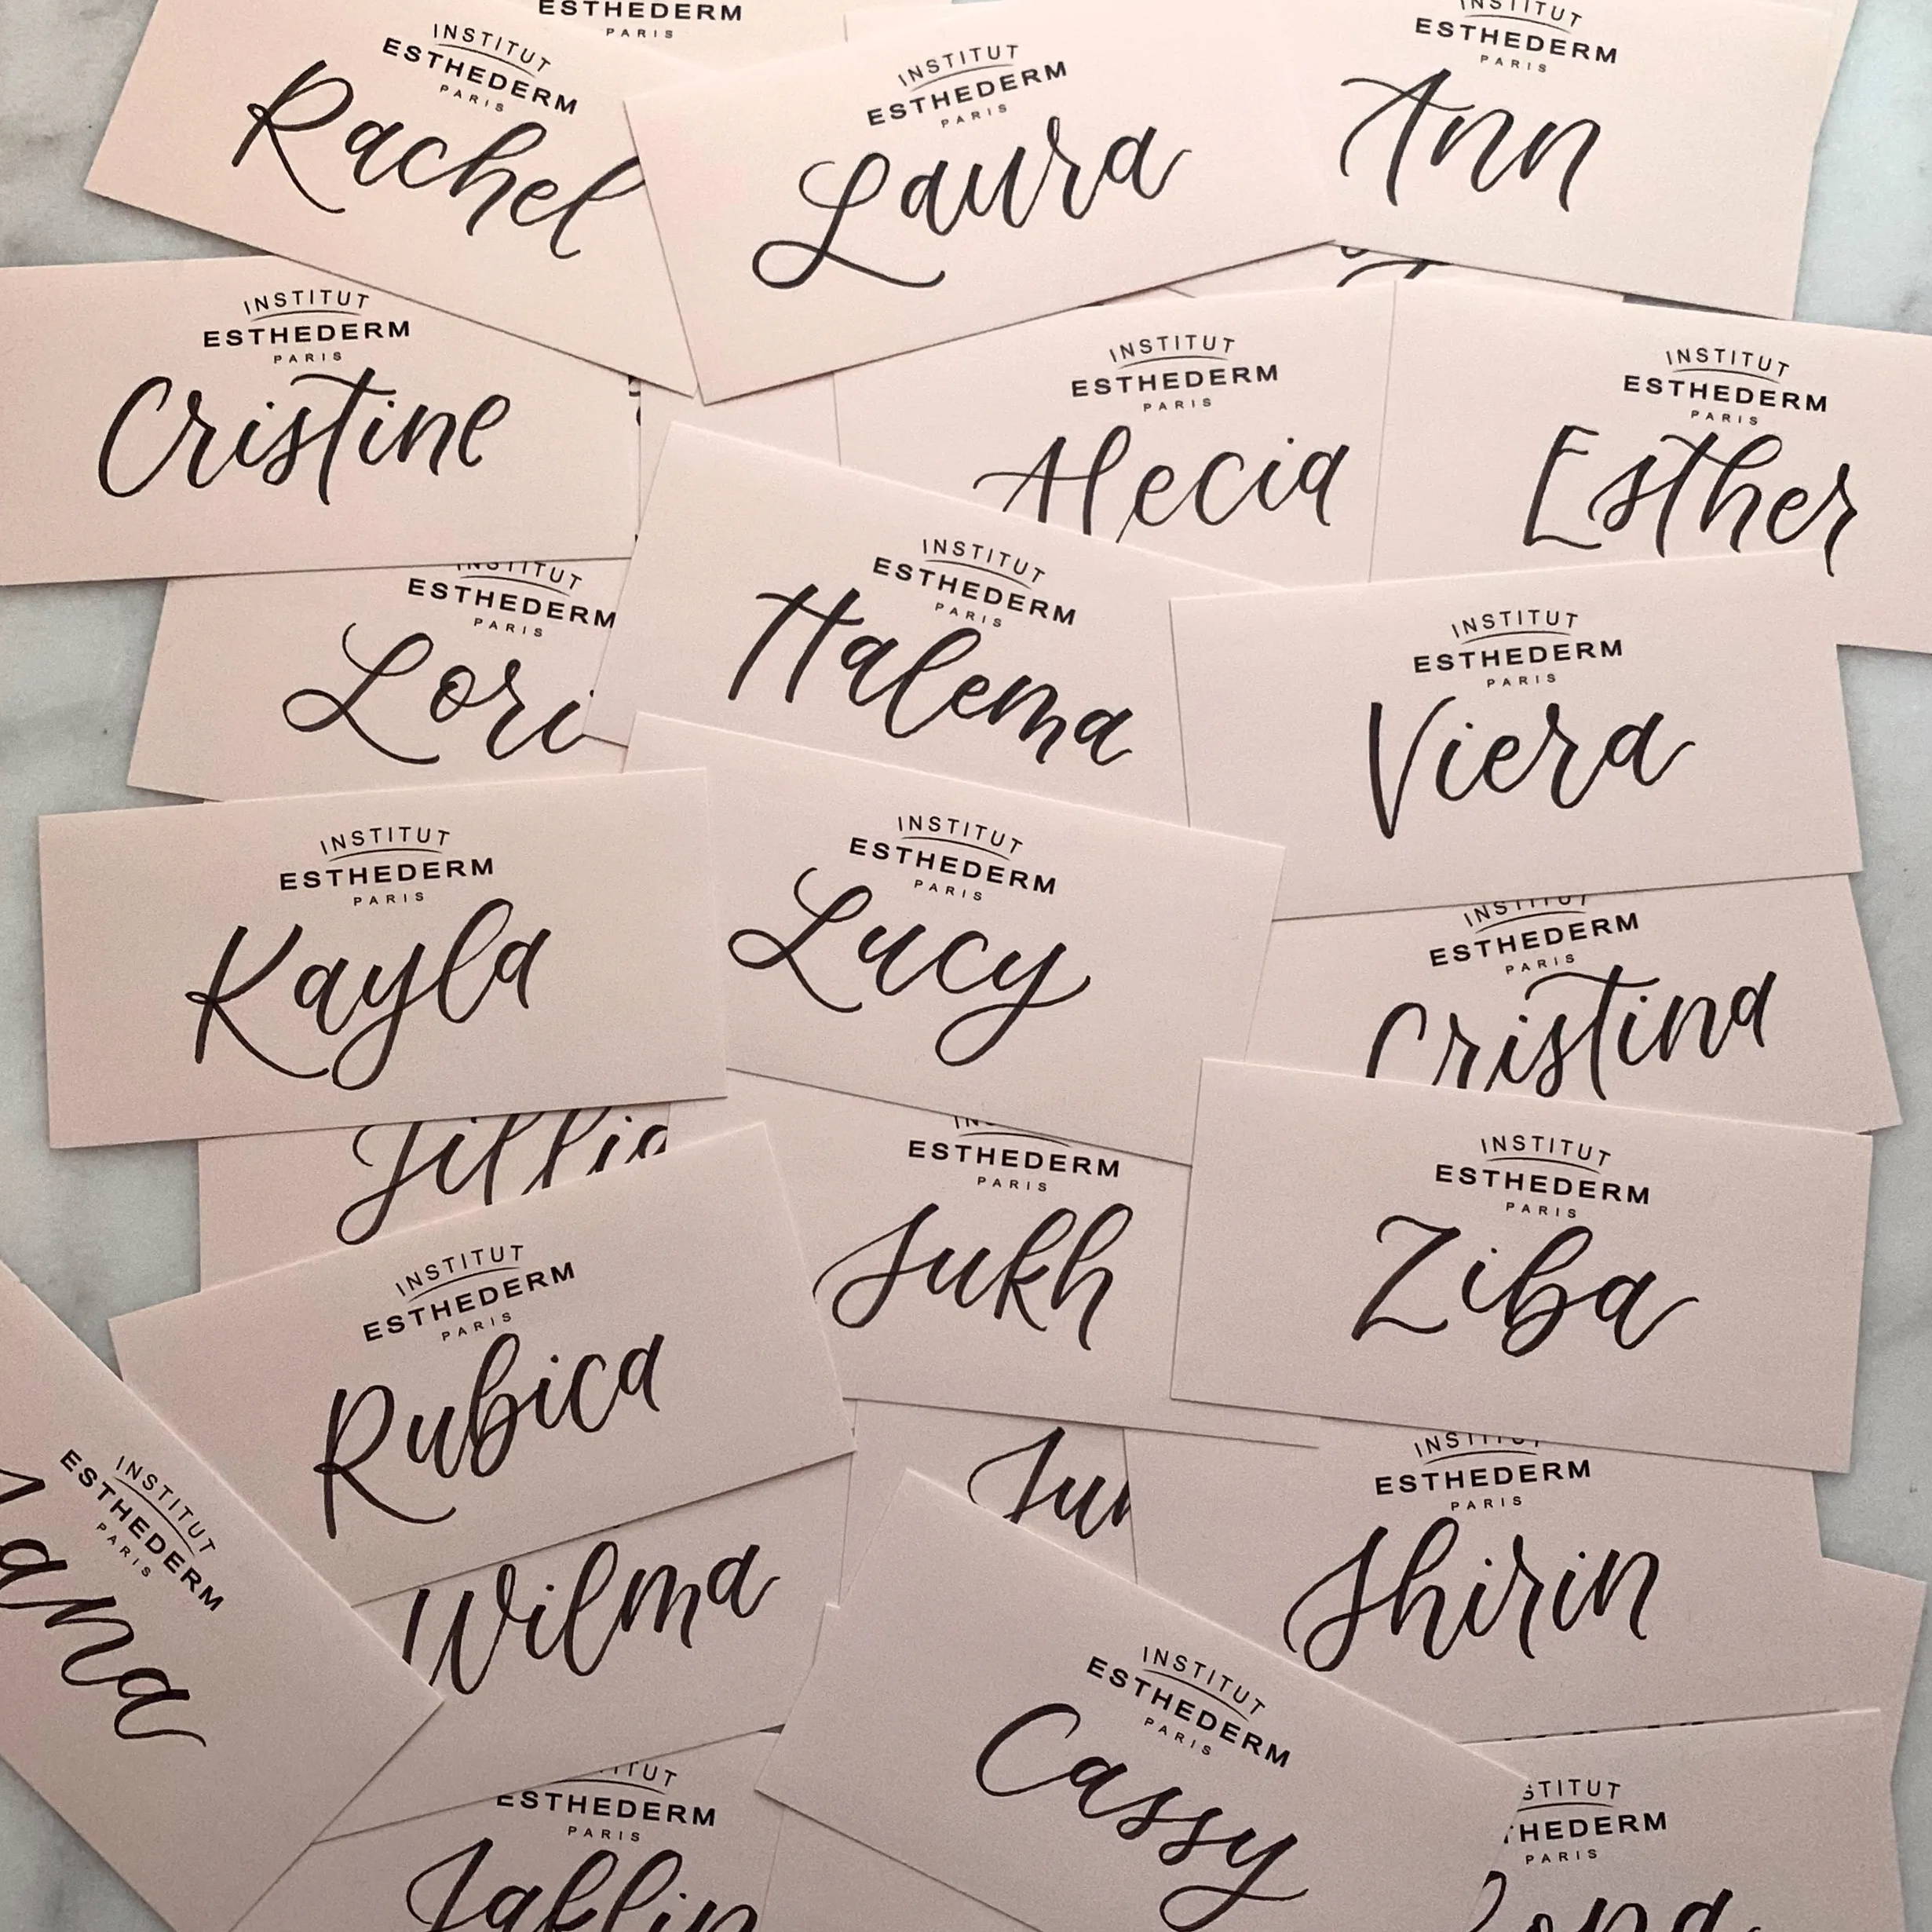 ESTHEDERM
PARIS
INSTITUT
ESTHEDERM
PARIS
Rachel
INSTITUT
ESTHEDERM
PARIS
Laura
INSTITUT
ESTHEDERM
PARIS
Ann
INSTITUT
ESTHEDERM
PARIS
Cristine
INSTITUT
ESTHEDERM
PARIS
Alecia
INSTITUT
ESTHEDERM
PARIS
Esther
INSTITUT
ESTHEDERM
PARIS
Lori
INSTITUT
ESTHEDERM
PARIS
Halema
INSTITUT
ESTHEDERM
PARIS
Viera
INSTITUT
ESTHEDERM
PARIS
Kayla
INSTITUT
ESTHEDERM
PARIS
Lucy
INSTITUT
ESTHEDERM
PARIS
Cristina
ESTHEDERM
PARIS
Sukh
INSTITUT
ESTHEDERM
PARIS
Ziba
INSTITUT
ESTHEDERM
PARIS
Rubica
INSTITUT
ESTHEDERM
PARIS
INSTITUT
ESTHEDERM
PARIS
Shirin
Wilma
INSTITUT
ESTHEDERM
PARIS
Cassy
ESTHEDERM
PARIS
STITUT
HEDERM
PARIS